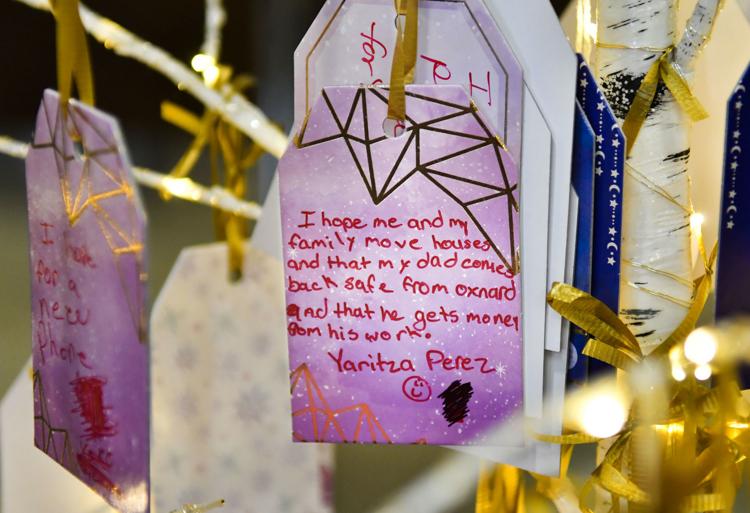 I
for
I hope me and my
family move houses
and that my dad comes
back safe from oxnard
and that he gets money
from his work.
Yaritza Perez
I hope
for a
new
Phone